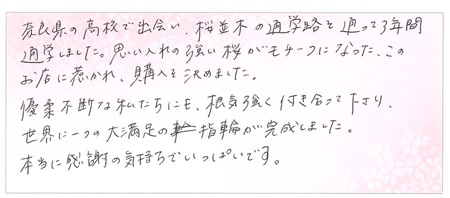 奈良県の高校で出会い、桜並木の通学路を通って3年間
通学しました。思い入れの強い桜がモチーフになった、この
お店に惹かれ、購入を決めました。
優柔不断な私たちにも、根気強く付き合って下さり、
世界に一つの大満足の指輪が完成しました。
本当に感謝の気持ちでいっぱいです。